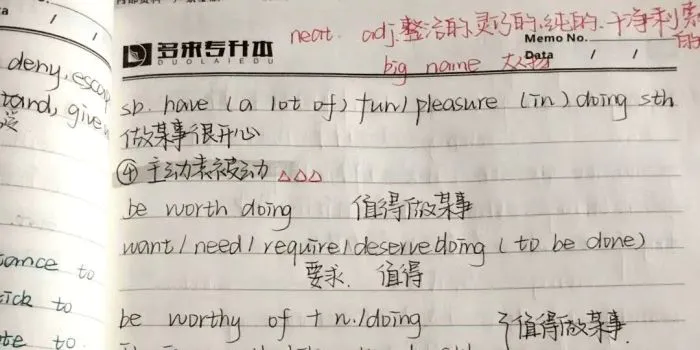 neat. adj.整洁的.灵巧的.纯的.干净利索的
Memo No.
多来专升本
DUOLAIEDU
Data / /
big name 大人物
deny, escap
tand, give
sb. have (a lot of) fun/pleasure (in) doing sth
做某事很开心
④ 主动表被动 △△△
be worth doing 值得做某事
want/need/require/deserve doing (to be done)
要求. 值得
tance to
tick to
be worthy of + n./doing 值得做某事.
te to